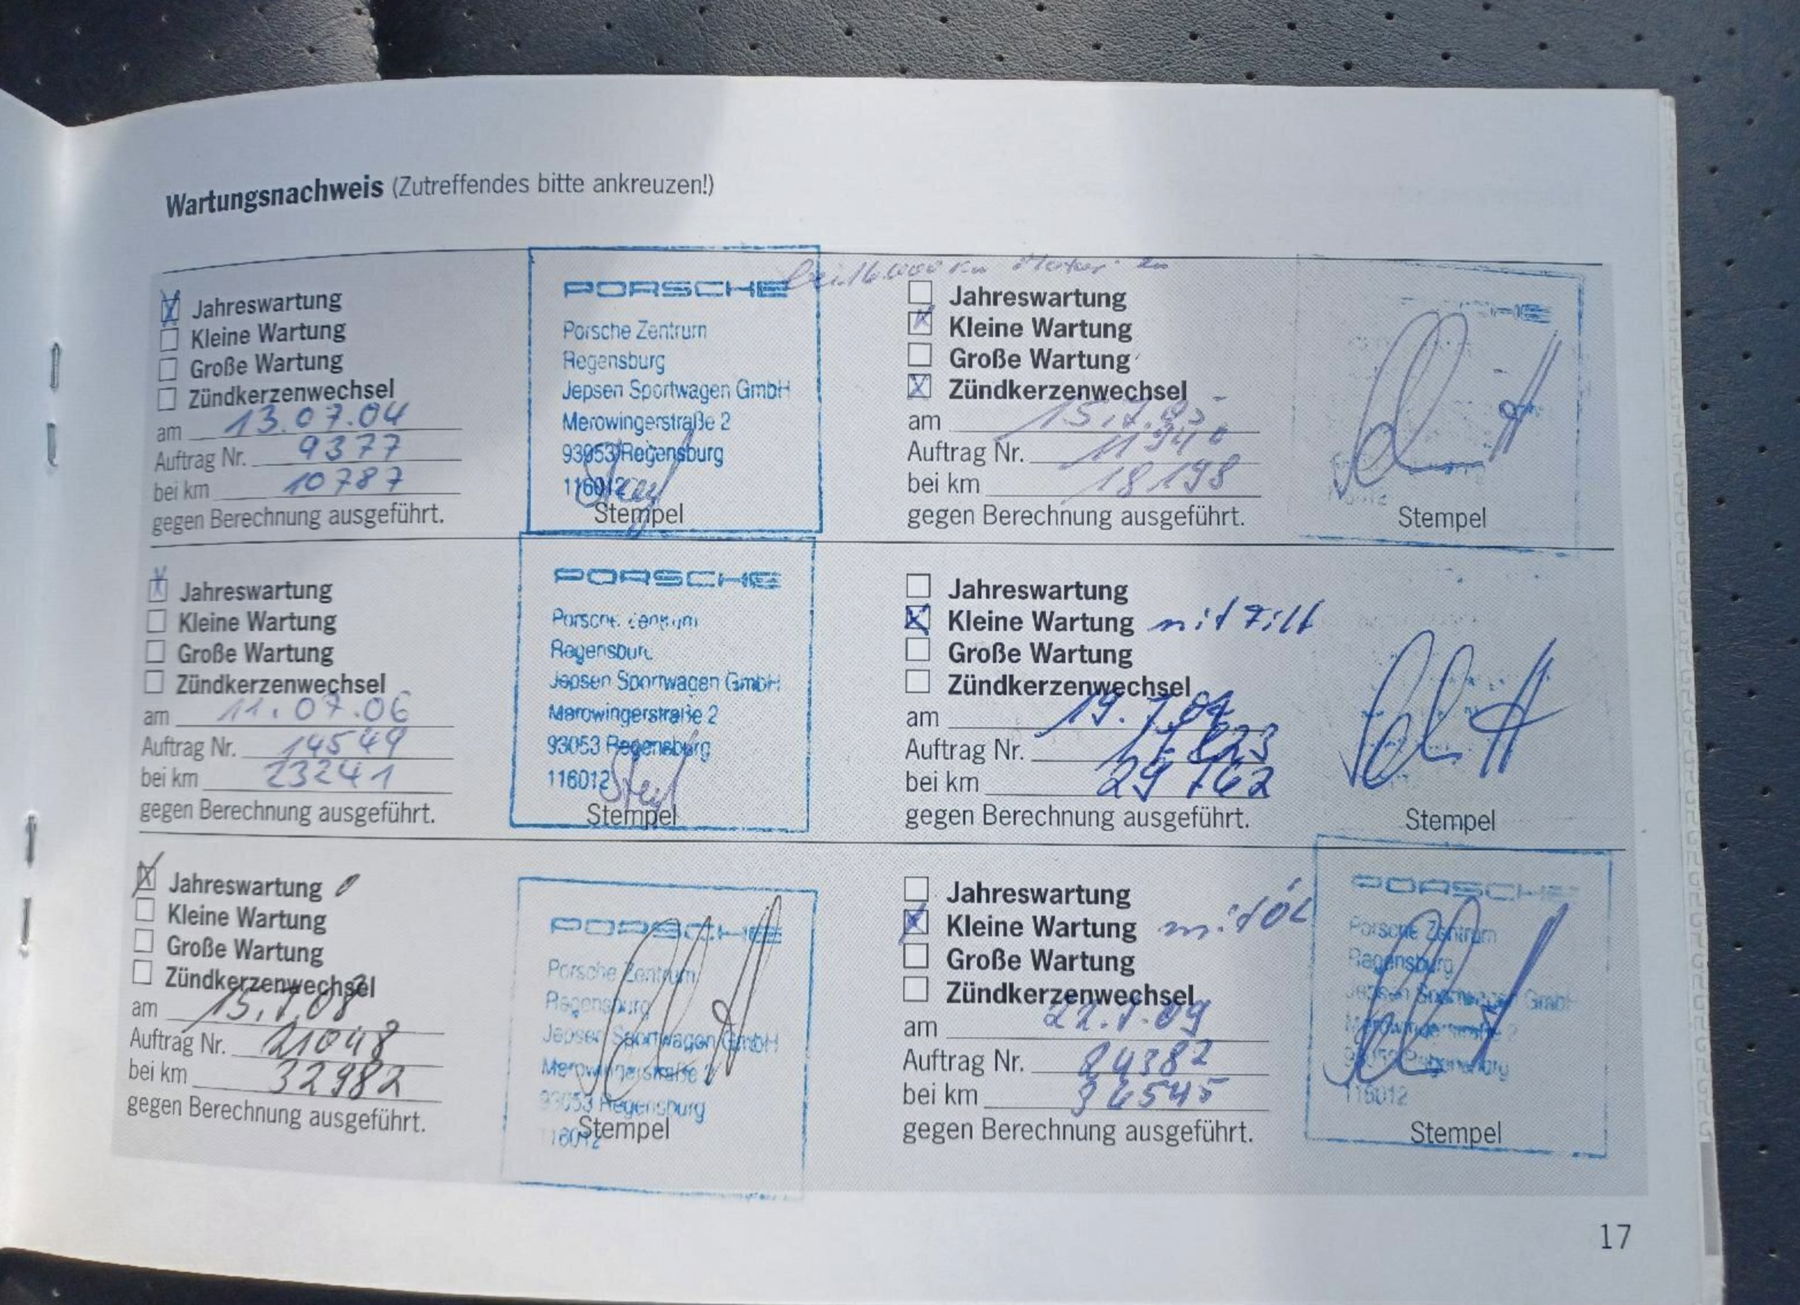 Wartungsnachweis (Zutreffendes bitte ankreuzen!)
Jahreswartung
Kleine Wartung
Große Wartung
Zündkerzenwechsel
am 13.07.04
Auftrag Nr. 9377
bei km 10787
gegen Berechnung ausgeführt.
PORSCHE
Porsche Zentrum
Regensburg
Jepsen Sportwagen GmbH
Merowingerstraße 2
93053 Regensburg
116012
Stempel
bei 16.000 km Motor
Jahreswartung
Kleine Wartung
Große Wartung
Zündkerzenwechsel
am 15.7.05
Auftrag Nr. 11940
bei km 18198
gegen Berechnung ausgeführt.
Stempel
Jahreswartung
Kleine Wartung
Große Wartung
Zündkerzenwechsel
am 11.07.06
Auftrag Nr. 14549
bei km 23241
gegen Berechnung ausgeführt.
PORSCHE
Porsche Zentrum
Regensburg
Jepsen Sportwagen GmbH
Merowingerstraße 2
93053 Regensburg
116012
Stempel
Jahreswartung
Kleine Wartung mit
Große Wartung
Zündkerzenwechsel
am 19.7.07
Auftrag Nr.
bei km 29762
gegen Berechnung ausgeführt.
Stempel
Jahreswartung
Kleine Wartung
Große Wartung
Zündkerzenwechsel
am 15.7.08
Auftrag Nr. 21048
bei km 32982
gegen Berechnung ausgeführt.
PORSCHE
Porsche Zentrum
Regensburg
Jepsen Sportwagen GmbH
Merowingerstraße 2
93053 Regensburg
116012
Stempel
Jahreswartung
Kleine Wartung mit Öl
Große Wartung
Zündkerzenwechsel
am 22.7.09
Auftrag Nr. 24382
bei km 36545
gegen Berechnung ausgeführt.
PORSCHE
Porsche Zentrum
Regensburg
Jepsen Sportwagen GmbH
Merowingerstraße 2
93053 Regensburg
116012
Stempel
17